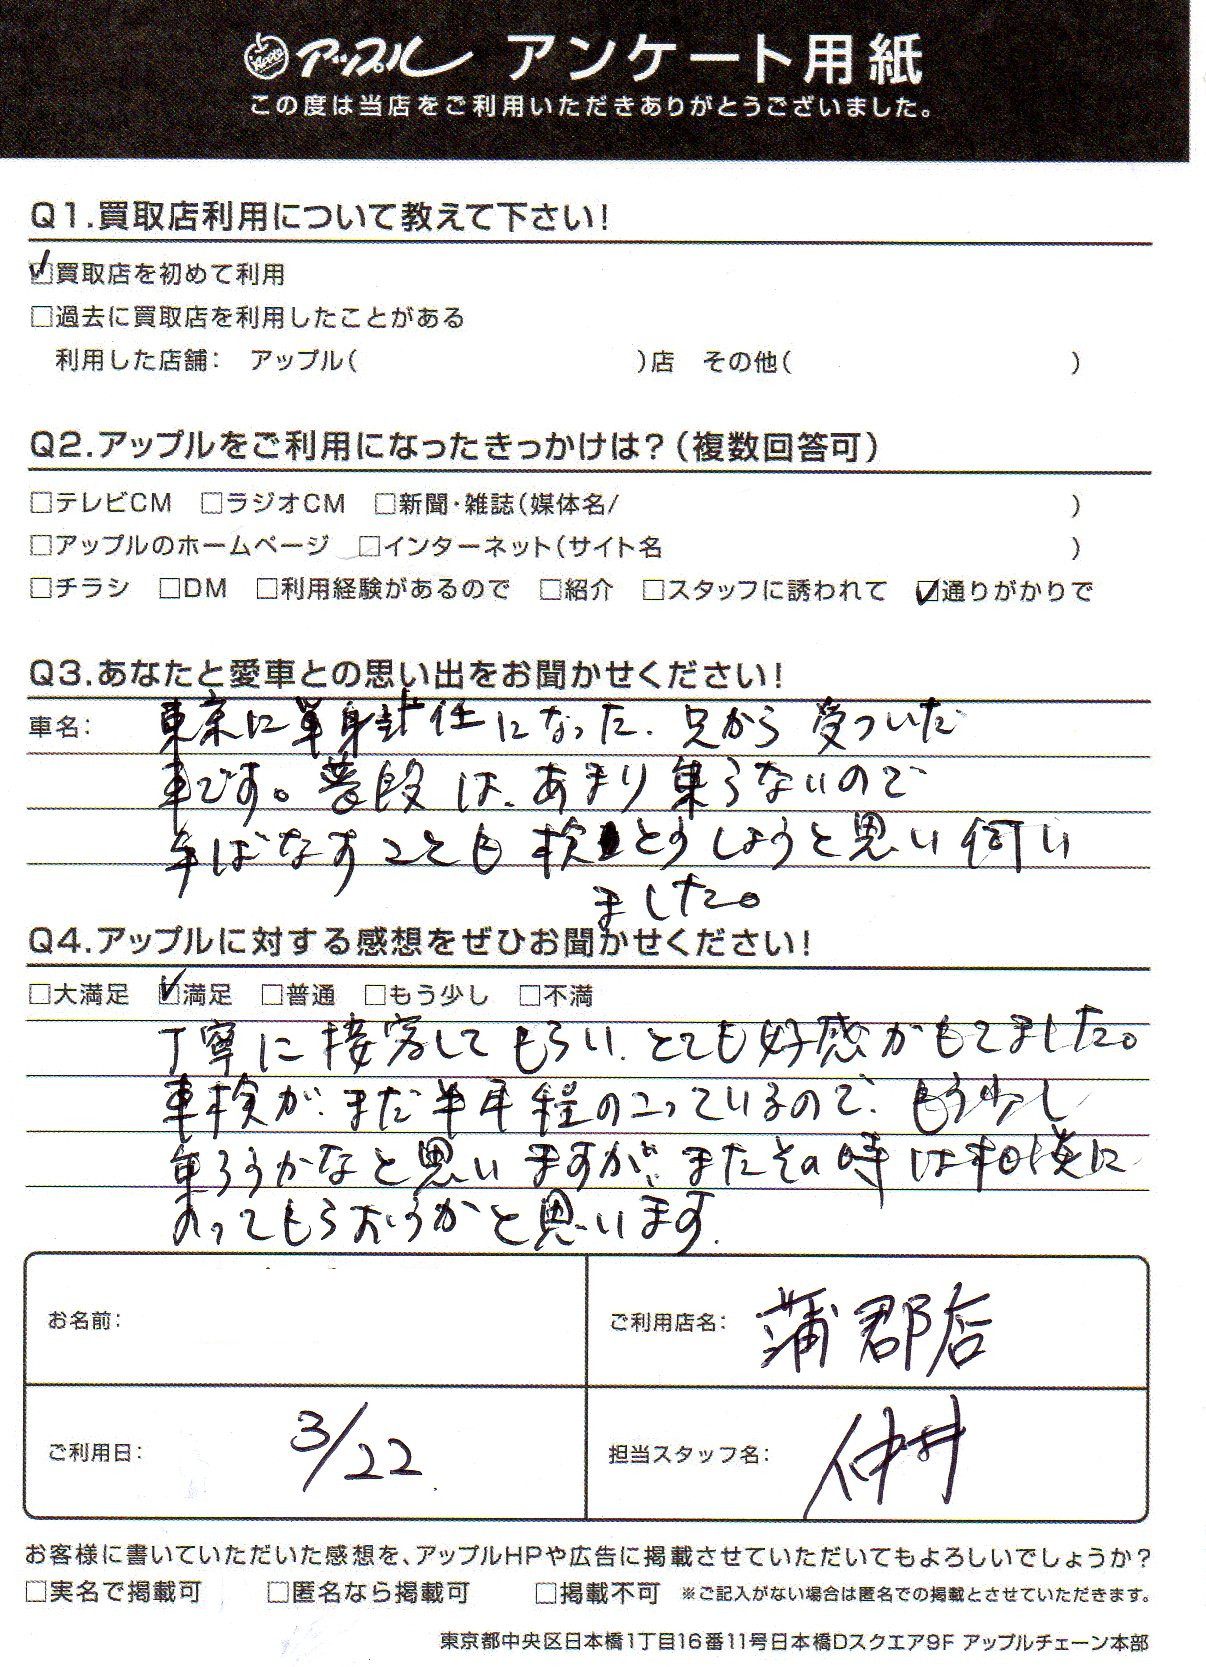 Apple アップル アンケート用紙
この度は当店をご利用いただきありがとうございました。
Q1.買取店利用について教えて下さい!
☑買取店を初めて利用
□過去に買取店を利用したことがある
利用した店舗： アップル( )店 その他( )
Q2.アップルをご利用になったきっかけは?(複数回答可)
□テレビCM □ラジオCM □新聞・雑誌(媒体名/ )
□アップルのホームページ □インターネット(サイト名 )
□チラシ □DM □利用経験があるので □紹介 □スタッフに誘われて ☑通りがかりで
Q3.あなたと愛車との思い出をお聞かせください!
車名： 東京に単身赴任になった、兄から受ついだ
車です。普段は、あまり乗らないので
手ばなすことも検とうしようと思い伺い
ました。
Q4.アップルに対する感想をぜひお聞かせください!
□大満足 ☑満足 □普通 □もう少し □不満
丁寧に接客してもらい、とても好感がもてました。
車検が、まだ半年程のこっているので、もう少し
乗ろうかなと思いますが、またその時は相談に
のってもらおうかと思います.
お名前：
ご利用店名： 蒲郡店
ご利用日： 3/22
担当スタッフ名： 仲井
お客様に書いていただいた感想を、アップルHPや広告に掲載させていただいてもよろしいでしょうか?
□実名で掲載可 □匿名なら掲載可 □掲載不可 ※ご記入がない場合は匿名での掲載とさせていただきます。
東京都中央区日本橋1丁目16番11号日本橋Dスクエア9F アップルチェーン本部